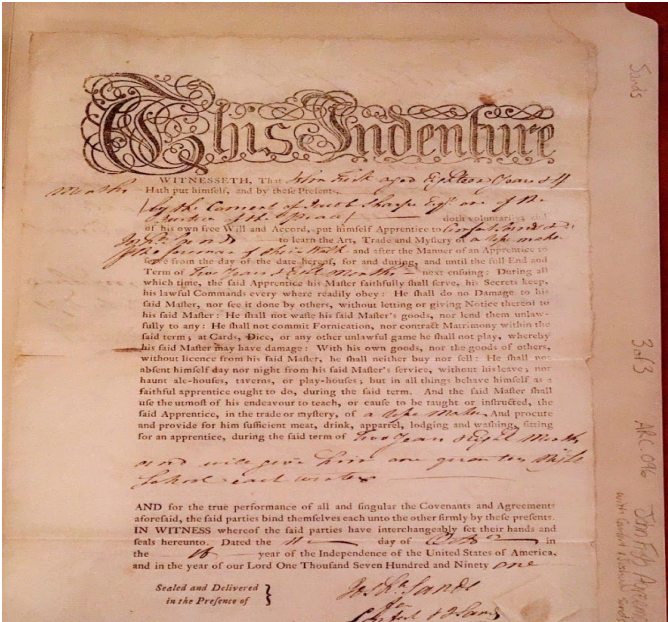 This Indenture
WITNESSETH, That John Fisk aged Eighteen Years & 4
Months Hath put himself, and by these Presents,
by the Consent of Jacob Sharpe Esqr. one of the
of the Peace doth voluntarily and
of his own free Will and Accord, put himself Apprentice to
to learn the Art, Trade and Mystery of a Rope maker
and after the Manner of an Apprentice to
serve from the day of the date hereof, for and during, and until the full End and
Term of Two Years & Eight Months next ensuing: During all
which time, the said Apprentice his Master faithfully shall serve, his Secrets keep,
his lawful Commands every where readily obey: He shall do no Damage to his
said Master, nor see it done by others, without letting or giving Notice thereof to
his said Master: He shall not waste his said Master's goods, nor lend them unlaw-
fully to any: He shall not commit Fornication, nor contract Matrimony within the
said term; at Cards, Dice, or any other unlawful game he shall not play, whereby
his said Master may have damage: With his own goods, nor the goods of others,
without licence from his said Master, he shall neither buy nor sell: He shall not
absent himself day nor night from his said Master's service, without his leave; nor
haunt ale-houses, taverns, or play-houses; but in all things behave himself as a
faithful apprentice ought to do, during the said term. And the said Master shall
use the utmost of his endeavour to teach, or cause to be taught or instructed, the
said Apprentice, in the trade or mystery, of a Rope Maker And procure
and provide for him sufficient meat, drink, apparel, lodging and washing, fitting
for an apprentice, during the said term of Two Years & Eight Months
and will give him one quarter Night
School each winter
AND for the true performance of all and singular the Covenants and Agreements
aforesaid, the said parties bind themselves each unto the other firmly by these presents.
IN WITNESS whereof the said parties have interchangeably set their hands and
seals hereunto. Dated the 11 day of in
the 16 year of the Independence of the United States of America,
and in the year of our Lord One Thousand Seven Hundred and Ninety one
Sealed and Delivered
in the Presence of
Sands
Sands
3 of 3
ARC.096
John Fisk